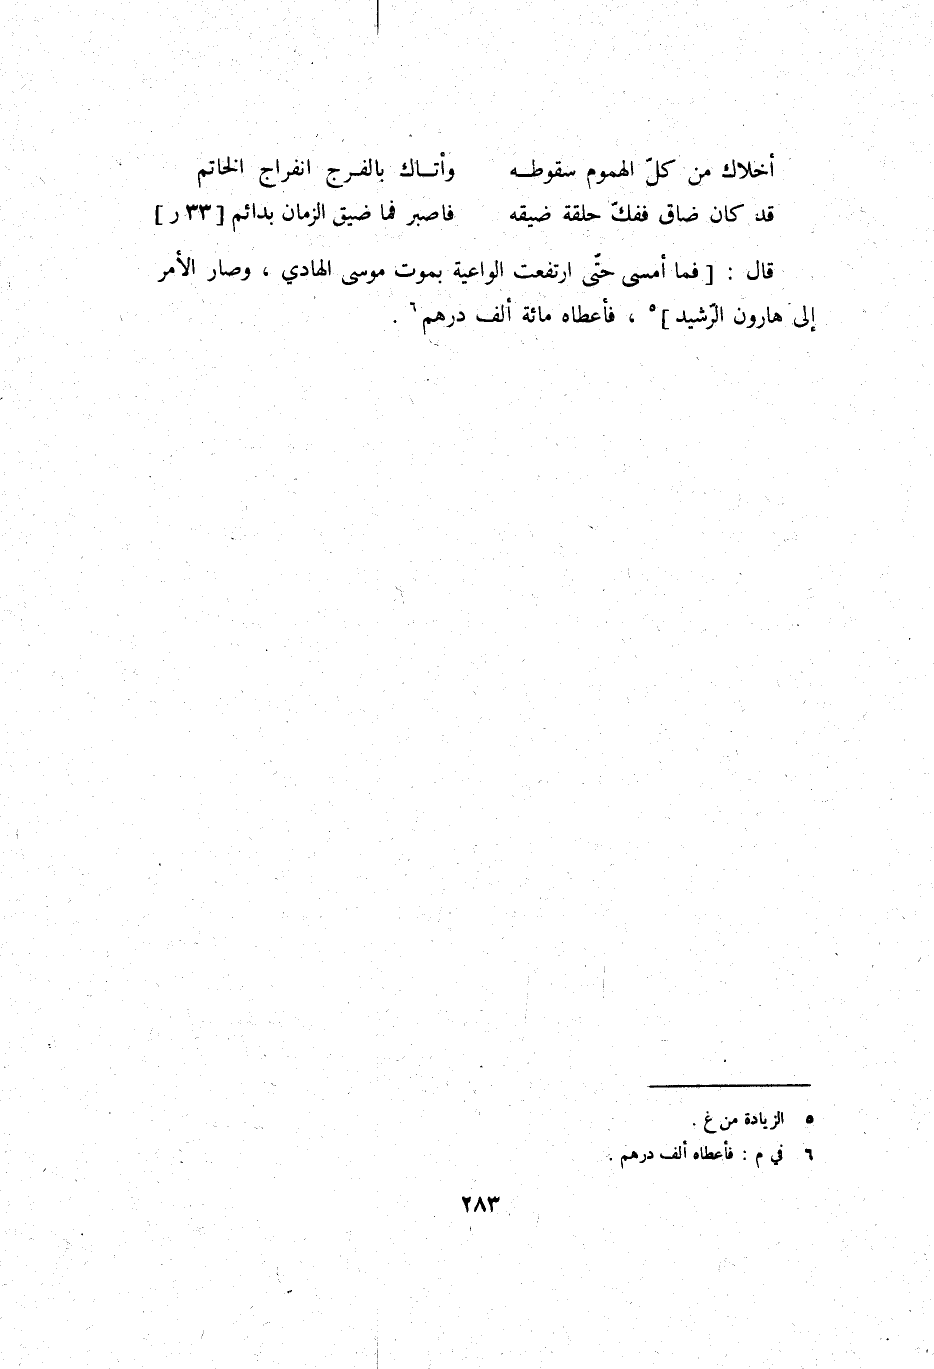 أخلاك من كلّ الهموم سقوطـــه وأتـــاك بالفـرج انفراج الخاتم
قد كان ضاق ففكّ حلقة ضيقه فاصبر فما ضيق الزمان بدائم [ ٣٣ ر ]
قال : [ فما أمسى حتّى ارتفعت الواعية بموت موسى الهادي ، وصار الأمر
إلى هارون الرّشيد ]٥ ، فأعطاه مائة ألف درهم٦ .
٥ الزيادة من غ .
٦ في م : فأعطاه ألف درهم .
٢٨٣